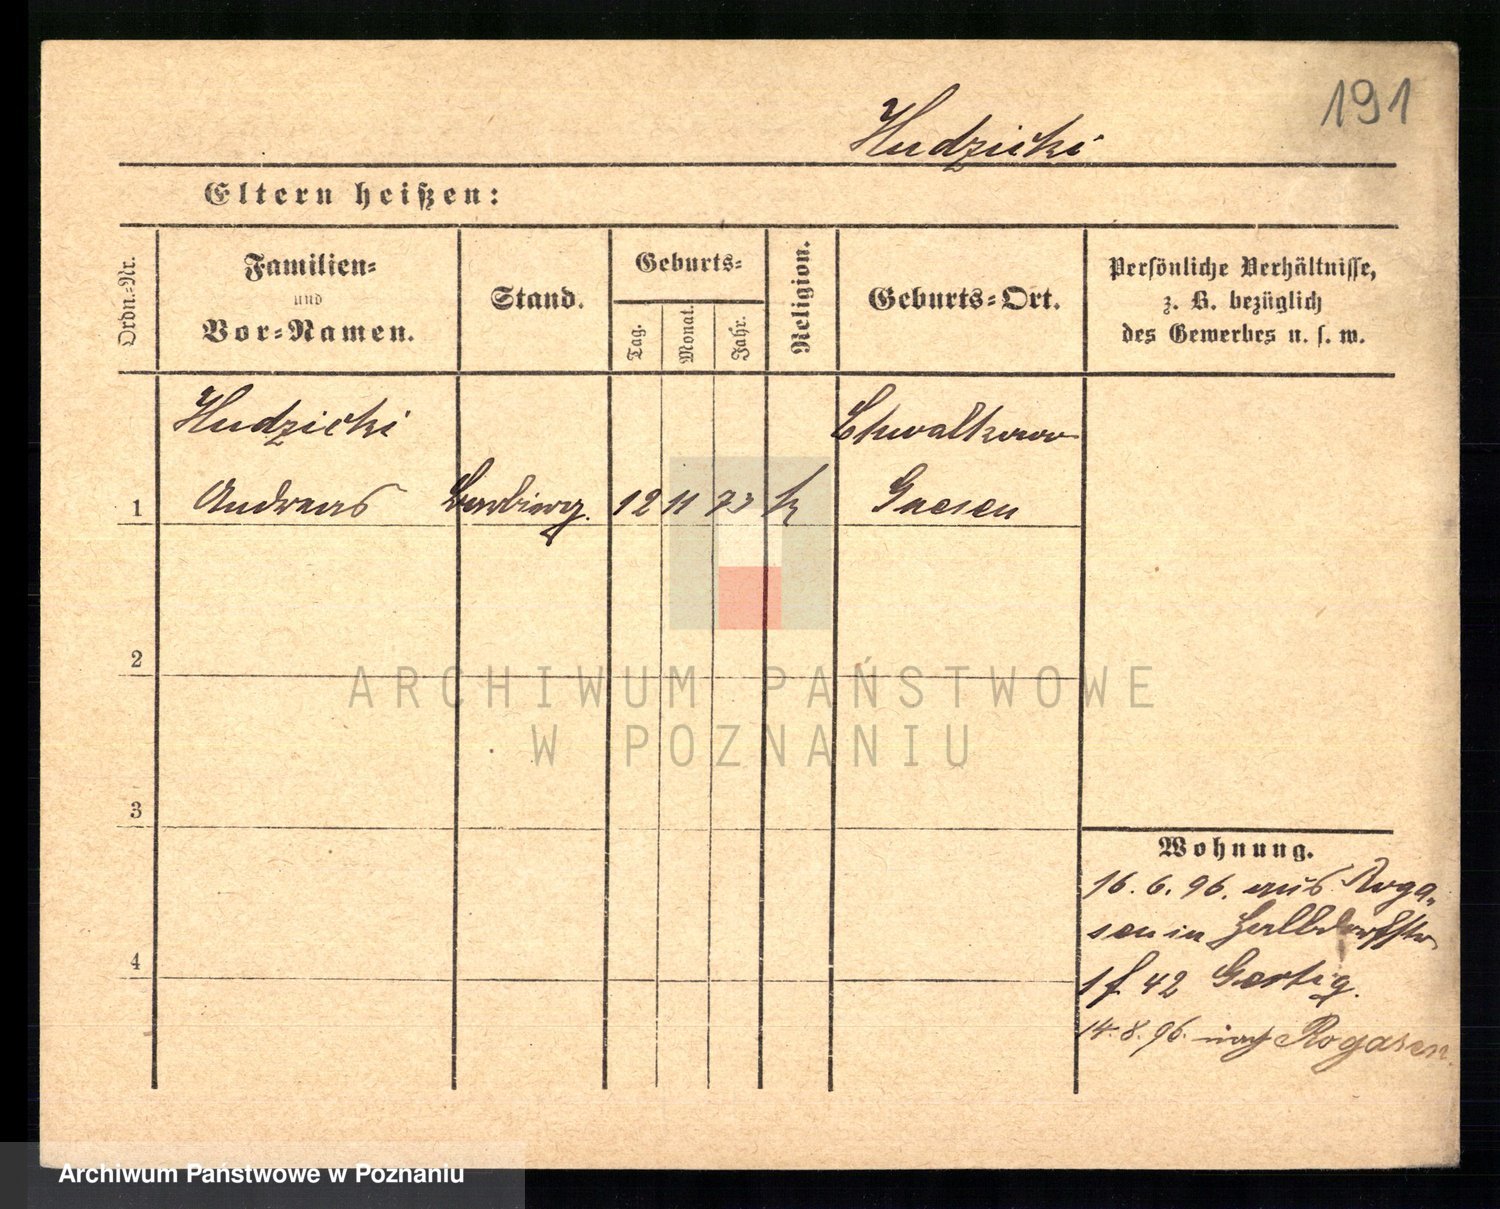 191
Hudzicki
Eltern heißen:
Ordn.-Nr.
Familien-
und
Vor-Namen.
Stand.
Geburts-
Tag.
Monat.
Jahr.
Religion.
Geburts-Ort.
Persönliche Verhältnisse,
z. B. bezüglich
des Gewerbes u. s. w.
Hudzicki
Chwalkowo
1 Andreas 12 11 73 k Gnesen
2
ARCHIWUM PAŃSTWOWE
W POZNANIU
3
Wohnung.
16. 6. 96. aus Roga-
sen in Halbdorfstr
4
42
14. 8. 96. nach Rogasen
Archiwum Państwowe w Poznaniu